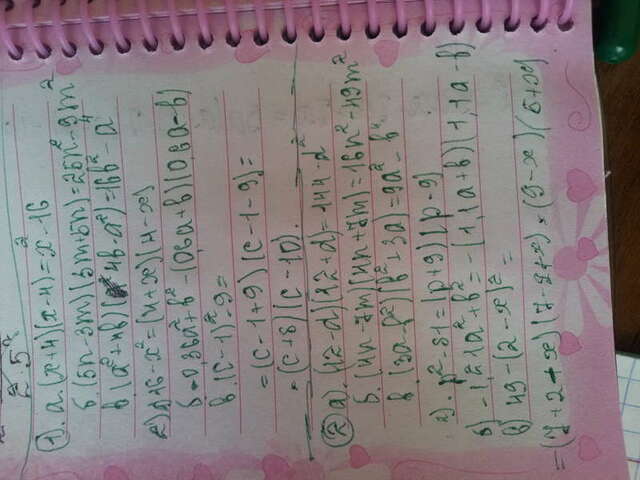 2 5²
1). а. (x+4)(x-4)=x²-16
б (5n-3m)(3m+5n)=25n²-9m²
в (a²+4b)(4b-a²)=16b²-a⁴
2) 16-x²=(4+x)(4-x)
б -0,36a²+b²-(06a+b)(06a-b)
в (c-1)²-9=
=(c-1+9)(c-1-9)=
=(c+8)(c-10).
2) а). (12-d)(12+d)=144-d²
б. (4n-7m)(4n+7m)=16n²-49m²
в (3a-b²)(b²+3a)=9a²-b⁴
г). p²-81=(p+9)(p-9)
д) -1,21a²+b²=-(1,1a+b)(1,1a-b)
е) 49-(2-x)²=
=(7+2-x)(7-2+x)=(9-x)(5+x)